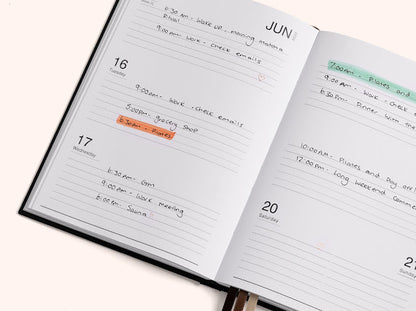 6:30 AM - Wake up, morning matcha
Ritual
9:00 AM - Work - check emails
JUN
16
Tuesday
9:00AM - Work - check emails
5:00PM - grocery shop
6:30AM - Pilates
17
Wednesday
6:30AM - Gym
9:00AM - Work meeting
8:00PM - Sauna
7:00AM - Pilates and
9:00 AM - Work - check
6:30PM - Dinner with
10:00AM - Pilates and Day
12:00PM - Long weekend
20
Saturday